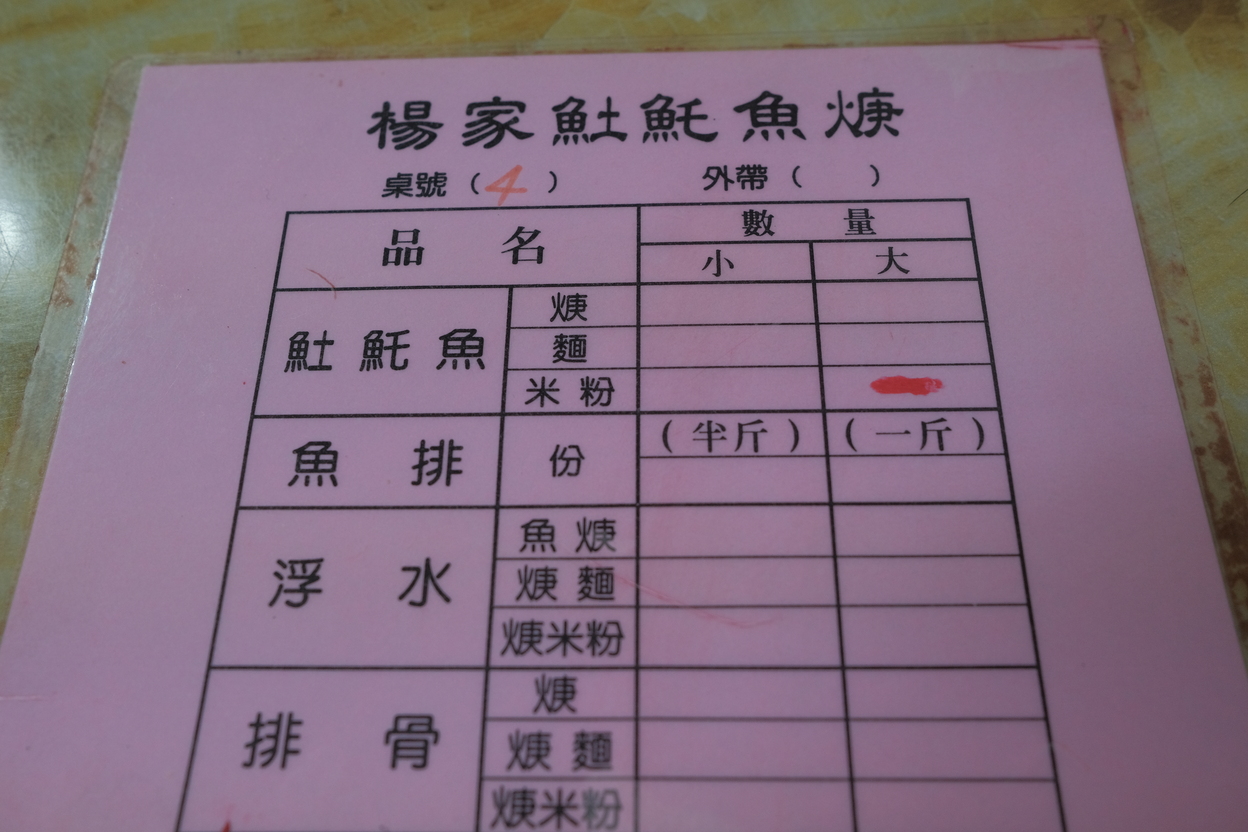 楊家䰾魠魚焿
桌號（4） 外帶（ ）
品名 數量
小 大
魚土魠魚 焿
麵
米粉
魚排 份 （半斤） （一斤）
浮水 魚焿
焿麵
焿米粉
排骨 焿
焿麵
焿米粉